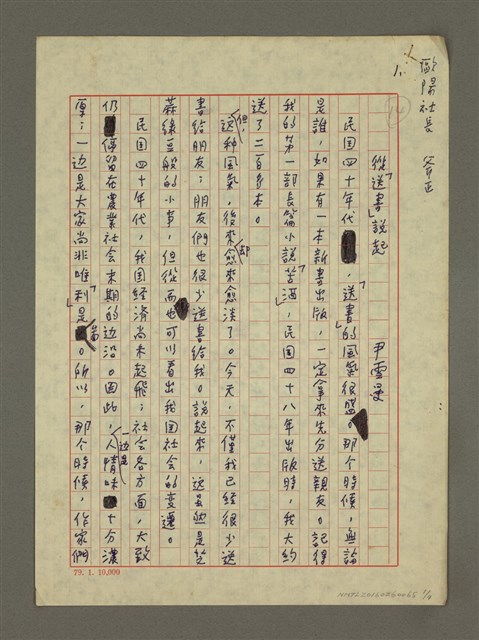 歐陽社長 斧正
1.
從「送書」說起
尹雪曼
民国四十年代，「送書」的風氣很盛。那个時候，無論
是誰，如果有一本新書出版，一定拿來先分送親友。記得
我的第一部長篇小說「苦酒」，民国四十八年出版時，我大約
送了二百多本。
但，这种風氣，後來却愈來愈淡了。今天，不僅我已經很少送
書給朋友；朋友們也很少送書給我。說起來，这虽然是芝
蔴綠豆般的小事，但從而也可以看出我国社会的变遷。
民国四十年代，我国經済尚未起飛；社会各方面，大致
仍停留在農業社会末期的边沿。因此，一边是人情味十分濃
厚；一边是大家尚非「唯利是啚」。所以，那个時候，作家們
79. 1. 10,000